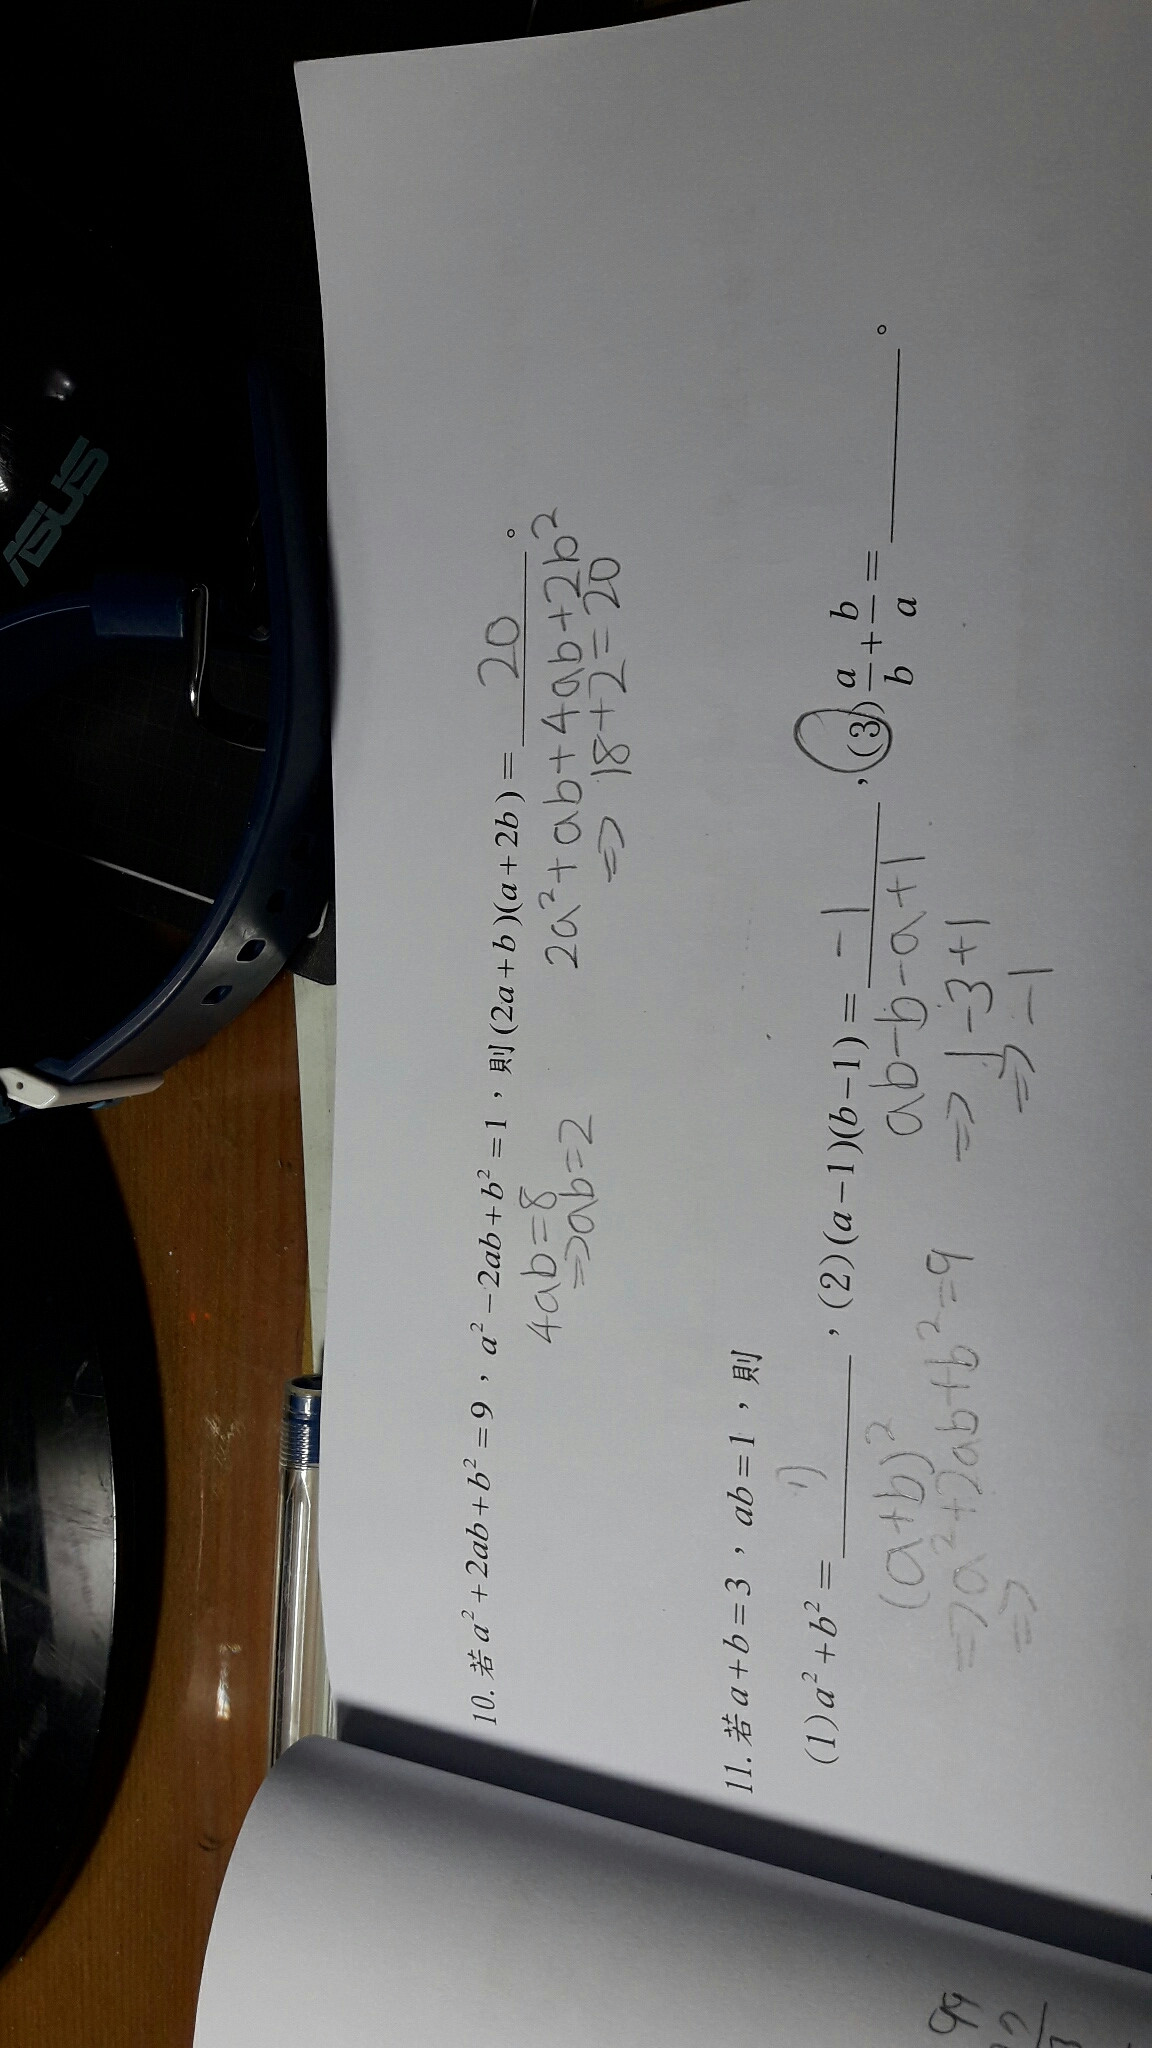 ASUS
10. 若a²+2ab+b²=9，a²-2ab+b²=1，則(2a+b)(a+2b)= 20 。
4ab=8
⇒ab=2
2a²+ab+4ab+2b²
⇒18+2=20
11. 若a+b=3，ab=1，則
(1)a²+b²=______，(2)(a-1)(b-1)= -1 ，(3)a/b+b/a=______。
(a+b)²
⇒a²+2ab+b²=9
⇒
ab-b-a+1
⇒1-3+1
⇒-1